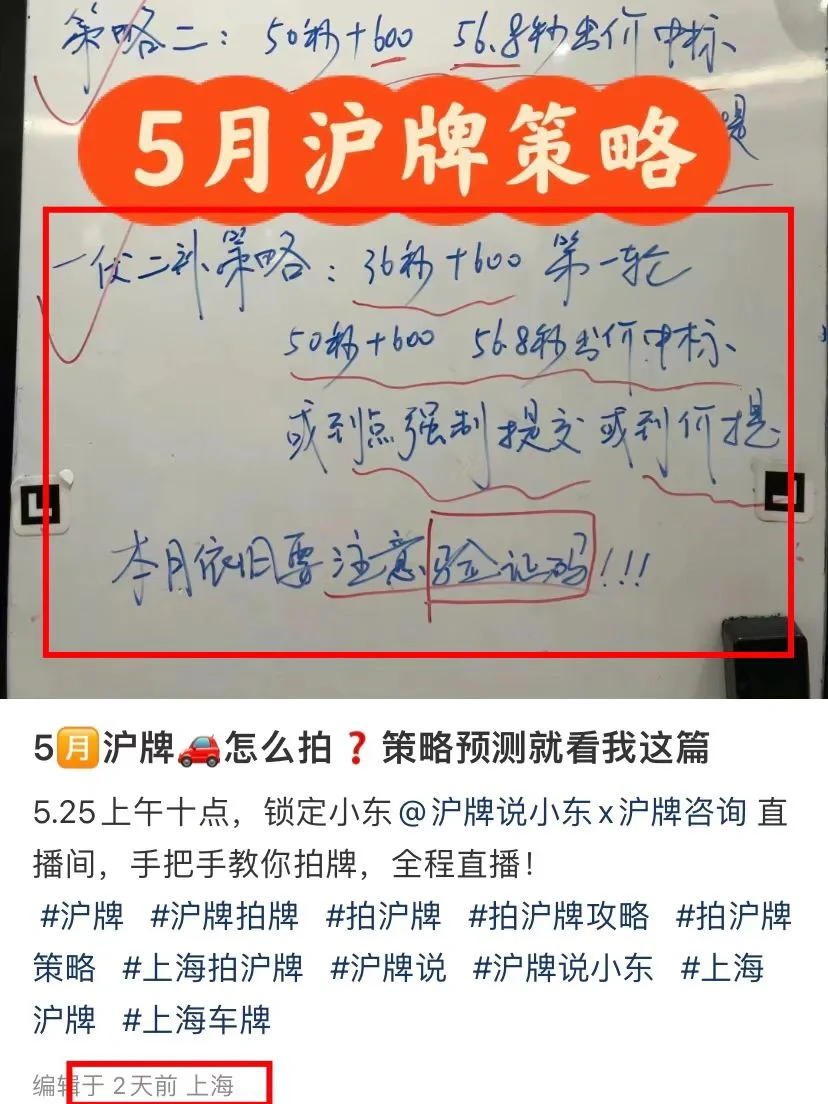 策略二：50秒+600 56.8秒出价中标、
5月沪牌策略
提
一伏二补策略：36秒+600 第一轮
50秒+600 56.8秒出价中标、
或到点强制提交或到价提
本月依旧要注意验证码!!!
5🈷️沪牌🚗怎么拍❓策略预测就看我这篇
5.25上午十点，锁定小东@沪牌说小东x沪牌咨询 直
播间，手把手教你拍牌，全程直播！
#沪牌 #沪牌拍牌 #拍沪牌 #拍沪牌攻略 #拍沪牌
策略 #上海拍沪牌 #沪牌说 #沪牌说小东 #上海
沪牌 #上海车牌
编辑于 2天前 上海